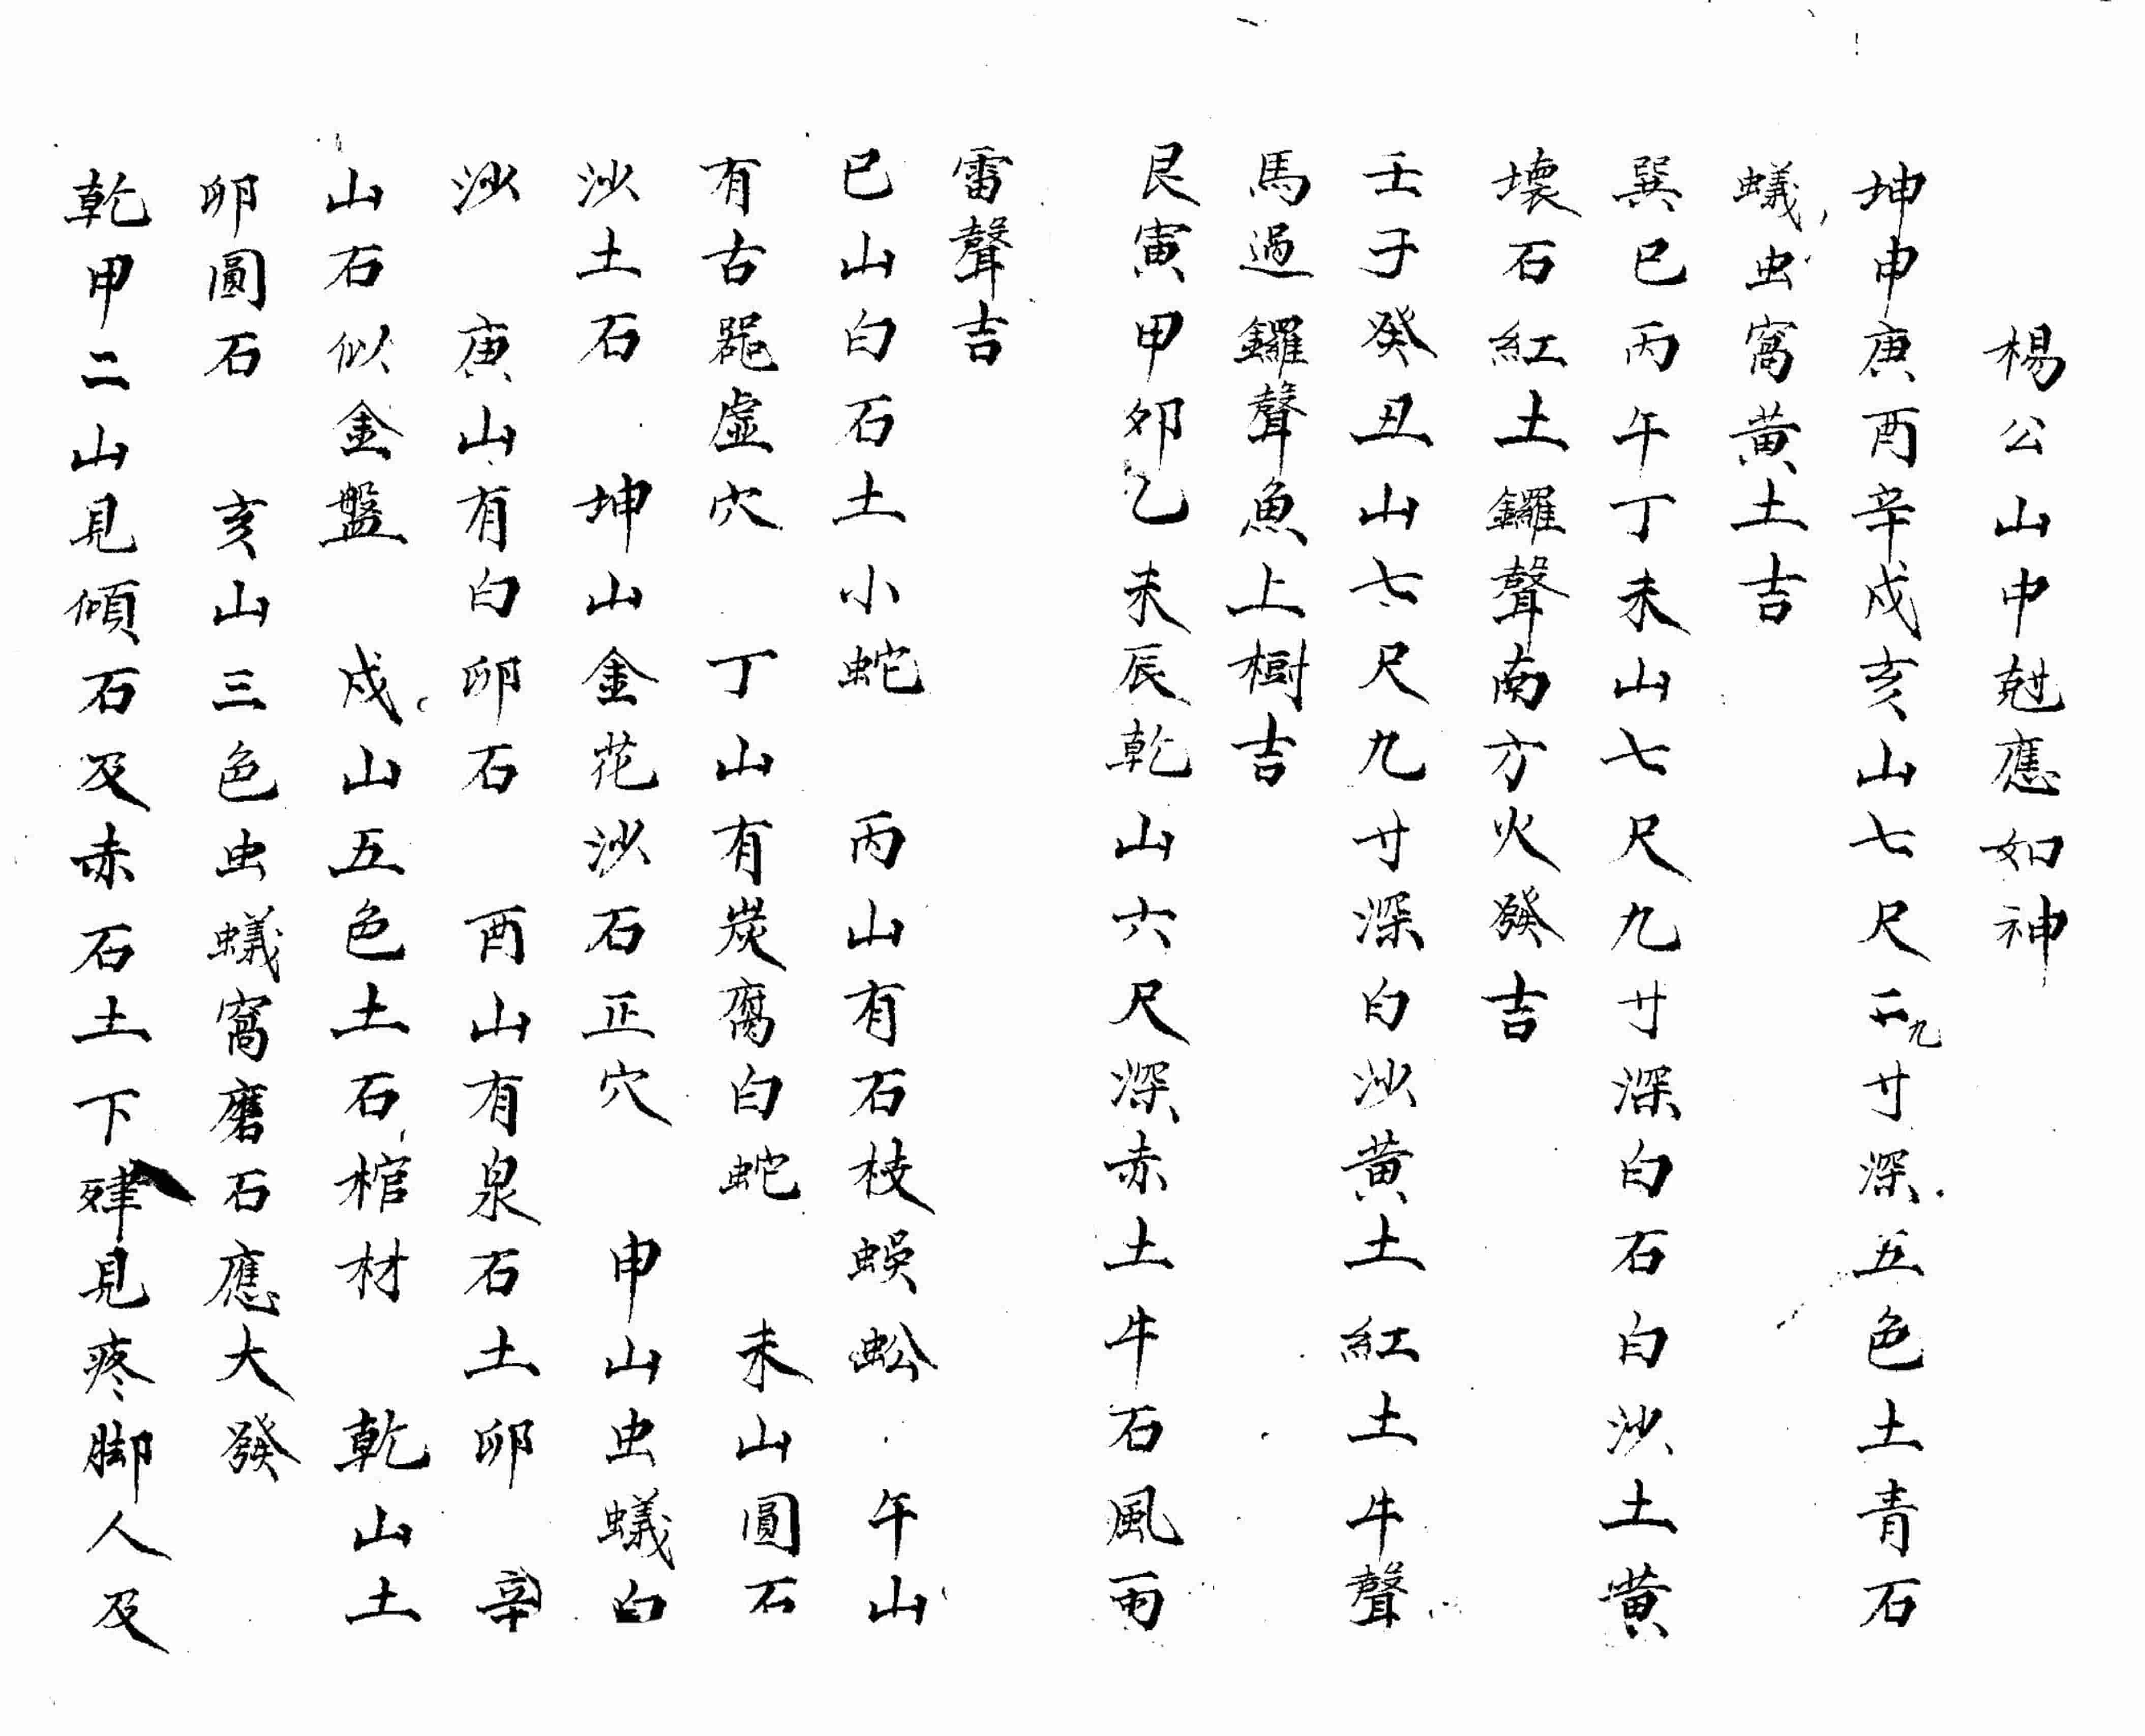 楊公山中尅應如神
坤申庚酉辛戌亥山七尺二九寸深五色土青石
蟻虫窩黄土吉
巽巳丙午丁未山七尺九寸深白石白沙土黄
壊石紅土鑼聲南方火發吉
壬子癸丑山七尺九寸深白沙黄土紅土牛聲
馬過鑼聲魚上樹吉
艮寅甲卯乙未辰乾山六尺深赤土牛石風雨
雷聲吉
巳山白石土小蛇　丙山有石枝蜈蚣　午山
有古器虚穴　丁山有炭腐白蛇　未山圓石
沙土石　坤山金花沙石正穴　申山虫蟻白
沙　庚山有白卵石　酉山有泉石土卵　辛
山石似金盤　戌山五色土石棺材　乾山土
卵圓石　亥山三色虫蟻窩磨石應大發
乾甲二山見傾石及赤石土下肂見疼脚人及